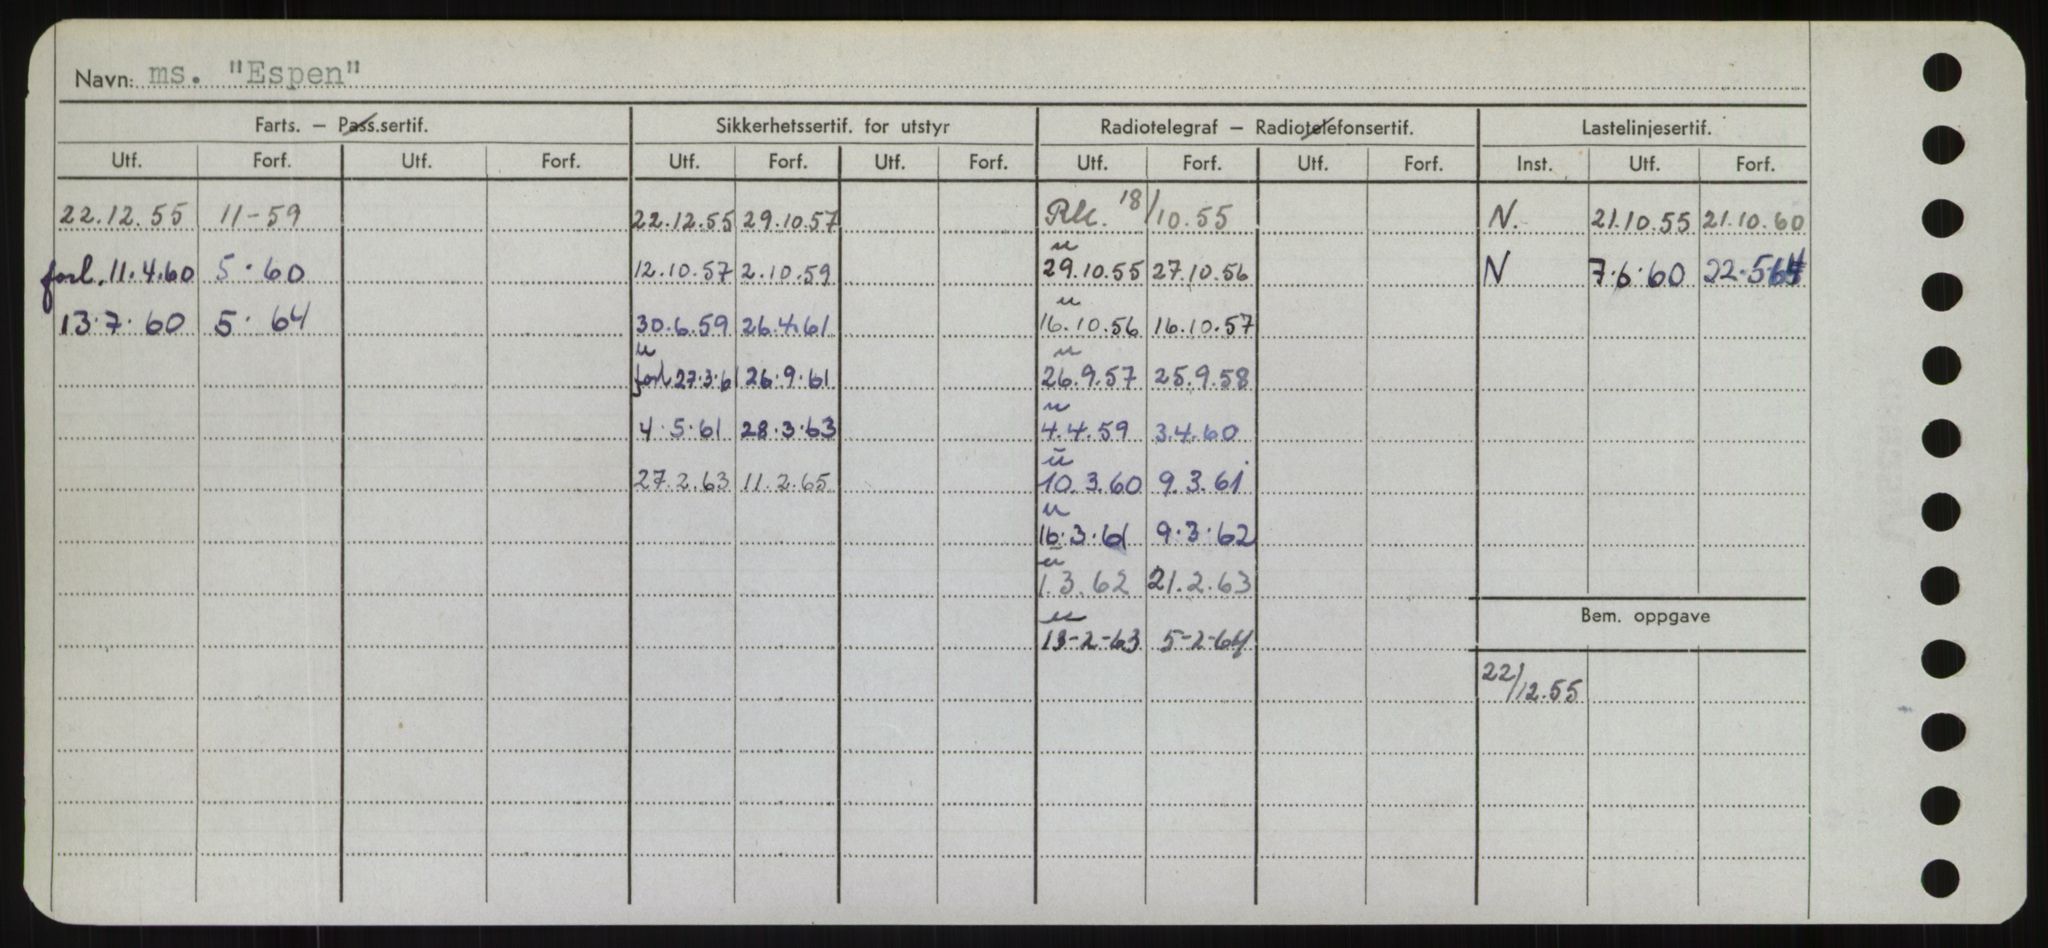 Navn: ms. "Espen"
Farts. – Pass.sertif. Sikkerhetssertif. for utstyr Radiotelegraf – Radiotelefonsertif. Lastelinjesertif.
Utf. Forf. Utf. Forf. Utf. Forf. Utf. Forf. Utf. Forf. Utf. Forf. Inst. Utf. Forf.
22.12.55 11-59 22.12.55 29.10.57 18/10.55 N. 21.10.55 21.10.60
u
forl. 11.4.60 5.60 12.10.57 2.10.59 29.10.55 27.10.56 N 7.6.60
u
13.7.60 5.64 30.6.59 26.4.61 16.10.56 16.10.57
u u
forl 27.3.61 26.9.61 26.9.57 25.9.58
u
4.5.61 28.3.63 4.4.59 3.4.60
u
27.2.63 11.2.65 10.3.60 9.3.61
u
16.3.61 9.3.62
u
1.3.62 21.2.63
Bem. oppgave
u
13-2-63 5-2-64
22/12.55